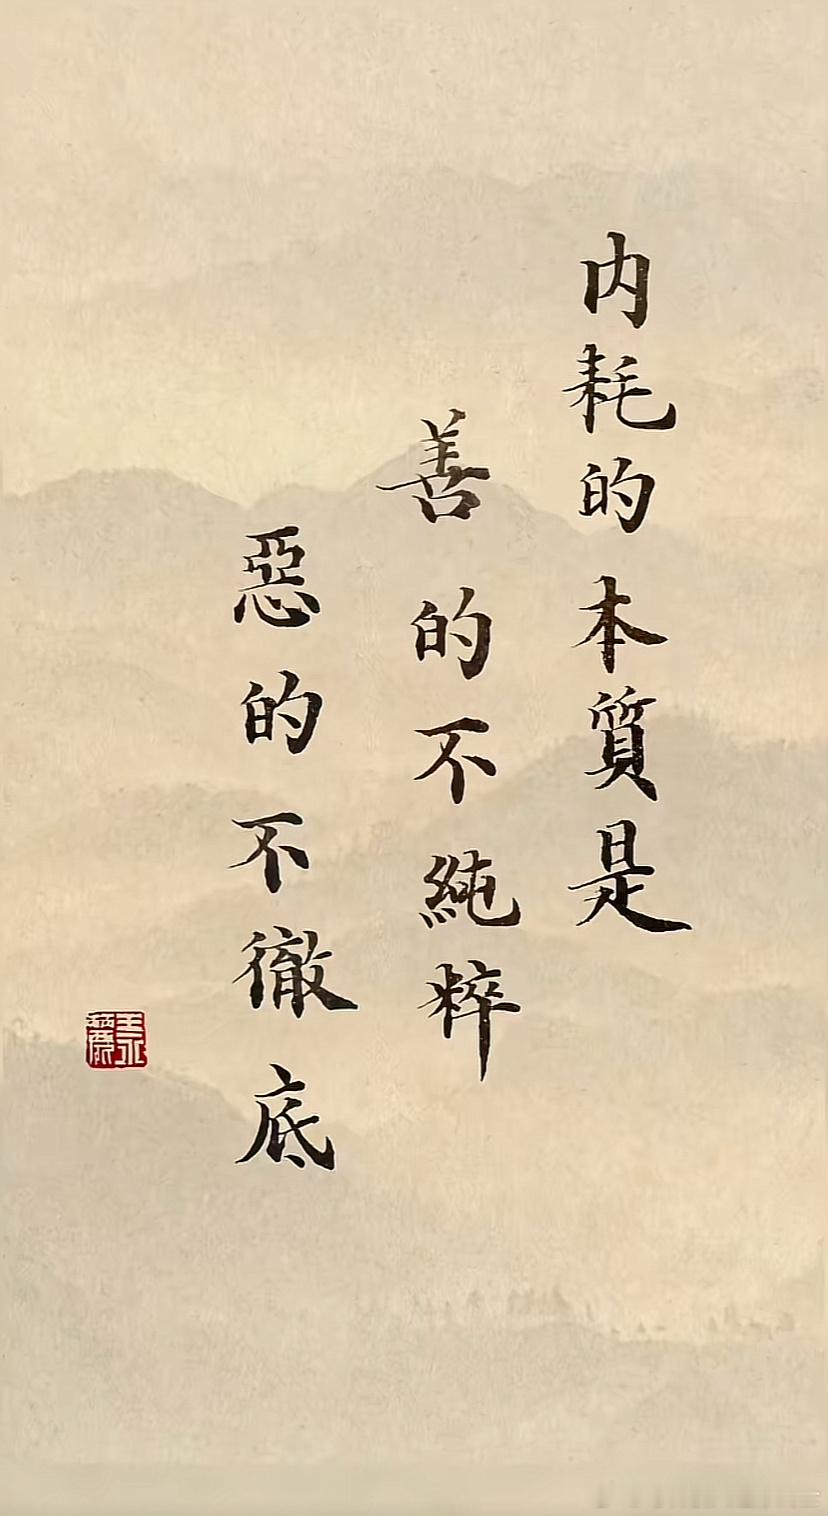 内耗的本質是
善的不純粹
惡的不徹底